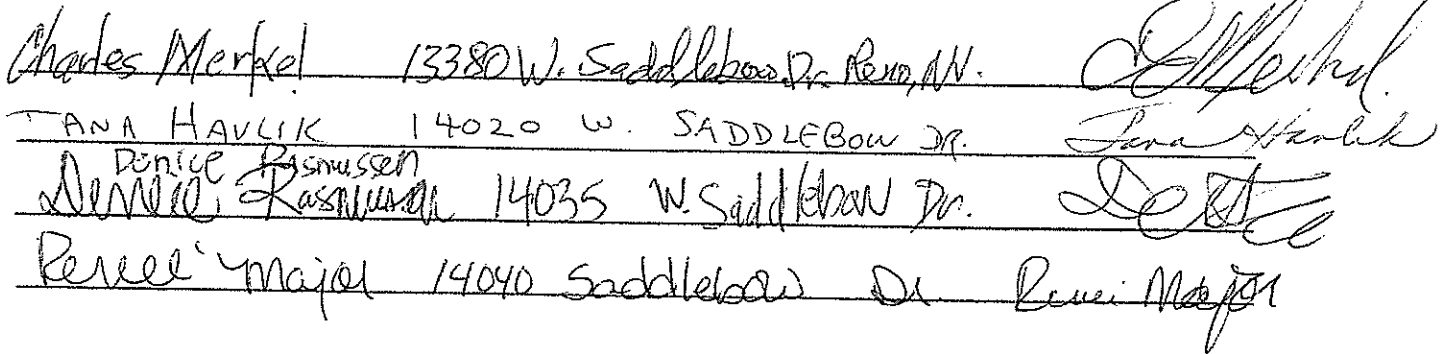 Charles Merkel 13380 W. Saddlebow Dr. Reno, NV.
TANA HAVLIK 14020 W. SADDLEBOW DR. Tana Havlik
Denice Rasmussen
Denice Rasmussen 14035 W. Saddlebow Dr.
Renee Major 14040 Saddlebow Dr. Renee Major